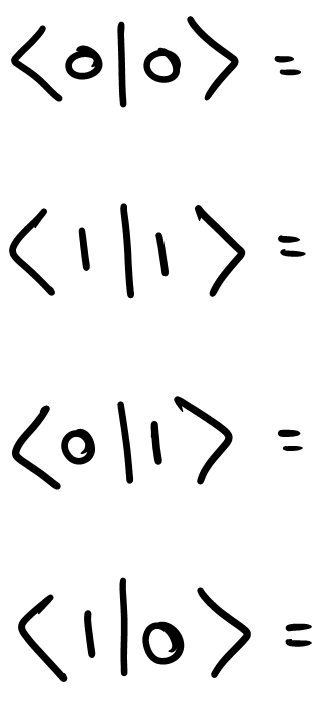 ⟨0|0⟩ =
⟨1|1⟩ =
⟨0|1⟩ =
⟨1|0⟩ =